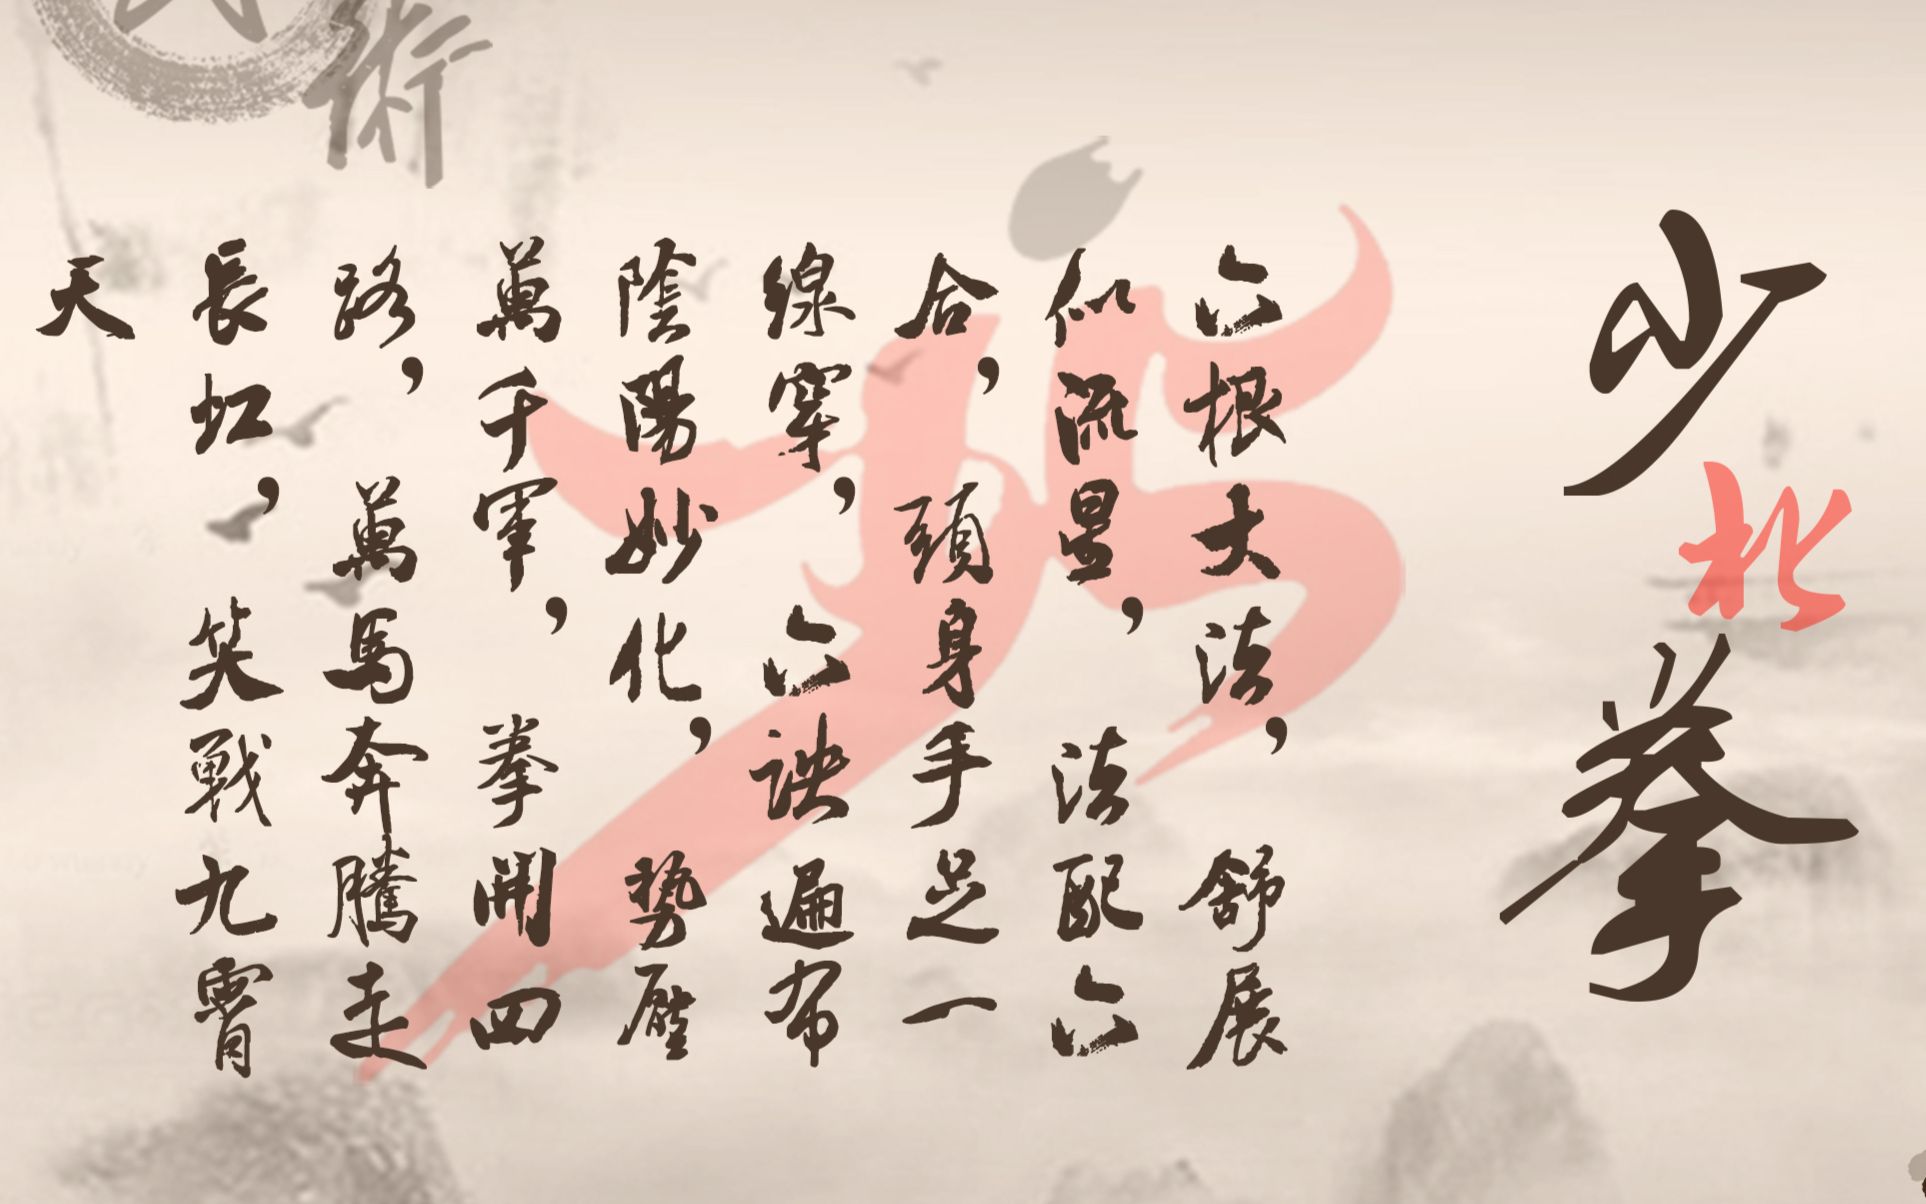 少北拳
六根大法，舒展
似流星，法配六
合，頭身手足一
線穿，六訣遍布
陰陽妙化，勢壓
萬千軍，拳開四
路，萬馬奔騰走
長虹，笑戰九霄
天
術